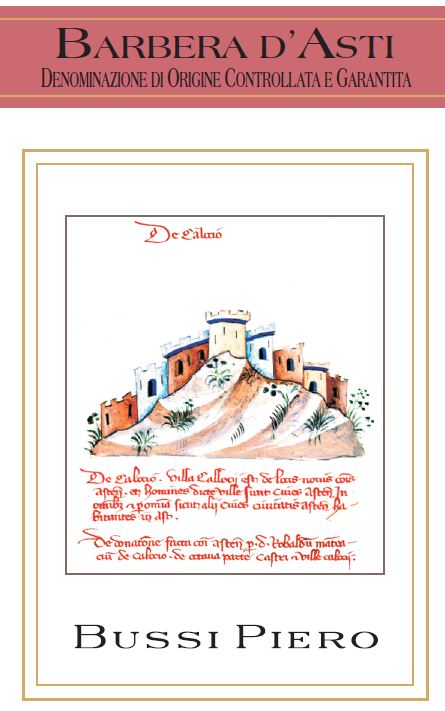 BARBERA D'ASTI
DENOMINAZIONE DI ORIGINE CONTROLLATA E GARANTITA
De Calocio
De Calocio. Villa Callocij est de locis novis com
asten. et homines dicte ville sunt cives asten in
omnibus per omnia sicut alij cives civitatis asten ha-
bitantes in ast.
De donatione facta com asten p. d. Robaldum
cum de Calocio. de octava parte Castri ville calocij.
BUSSI PIERO